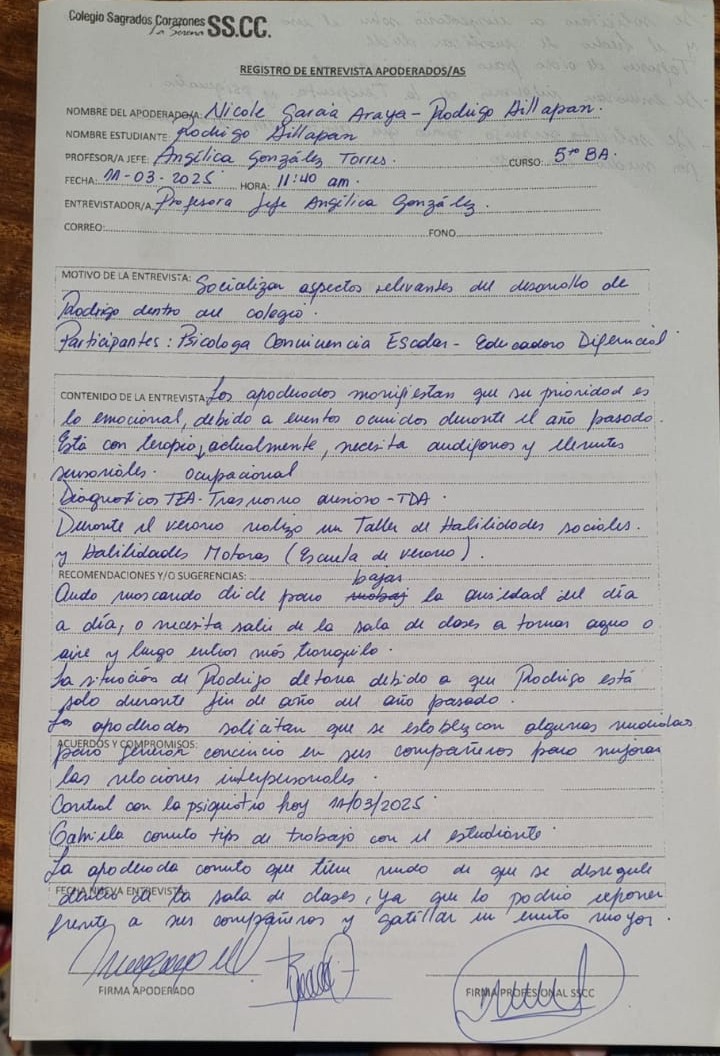 Colegio Sagrados Corazones SS.CC.
La Serena
REGISTRO DE ENTREVISTA APODERADOS/AS
NOMBRE DEL APODERADO/A: Nicole García Araya - Rodrigo Aillapan.
NOMBRE ESTUDIANTE: Rodrigo Aillapan
PROFESOR/A JEFE: Angélica González Torres. CURSO: 5to BA.
FECHA: 11-03-2025 HORA: 11:40 am.
ENTREVISTADOR/A: Profesora Jefe Angélica González.
CORREO: FONO
MOTIVO DE LA ENTREVISTA: Socializar aspectos relevantes del desarrollo de
Rodrigo dentro del colegio.
Participantes: Psicologa Convivencia Escolar - Educadora Diferencial
CONTENIDO DE LA ENTREVISTA: Los apoderados manifiestan que su prioridad es
lo emocional, debido a eventos ocurridos durante el año pasado.
Está con terapia, actualmente, necesita audifonos y elementos
sensoriales. ocupacional
Diagnosticos TEA - Trastorno ansioso - TDA.
Durante el verano realizo un Taller de Habilidades sociales.
y Habilidades Motoras (Escuela de verano).
RECOMENDACIONES Y/O SUGERENCIAS: bajar
Anda mascando chicle para la ansiedad del día
a día, o necesita salir de la sala de clases a tomar agua o
aire y luego entrar más tranquilo.
La situación de Rodrigo detona debido a que Rodrigo está
solo durante fin de año del año pasado.
Los apoderados solicitan que se establezcan algunas medidas
ACUERDOS Y COMPROMISOS:
para generar conciencia en sus compañeros para mejorar
las relaciones interpersonales.
Control con la psiquiatra hoy 11/03/2025
Gabriela comenta tips de trabajo con el estudiante.
La apoderada comenta que tiene miedo de que se desregule
FECHA NUEVA ENTREVISTA:
dentro de la sala de clases, ya que lo podría exponer
frente a sus compañeros y gatillar un evento mayor.
FIRMA APODERADO FIRMA PROFESIONAL SSCC